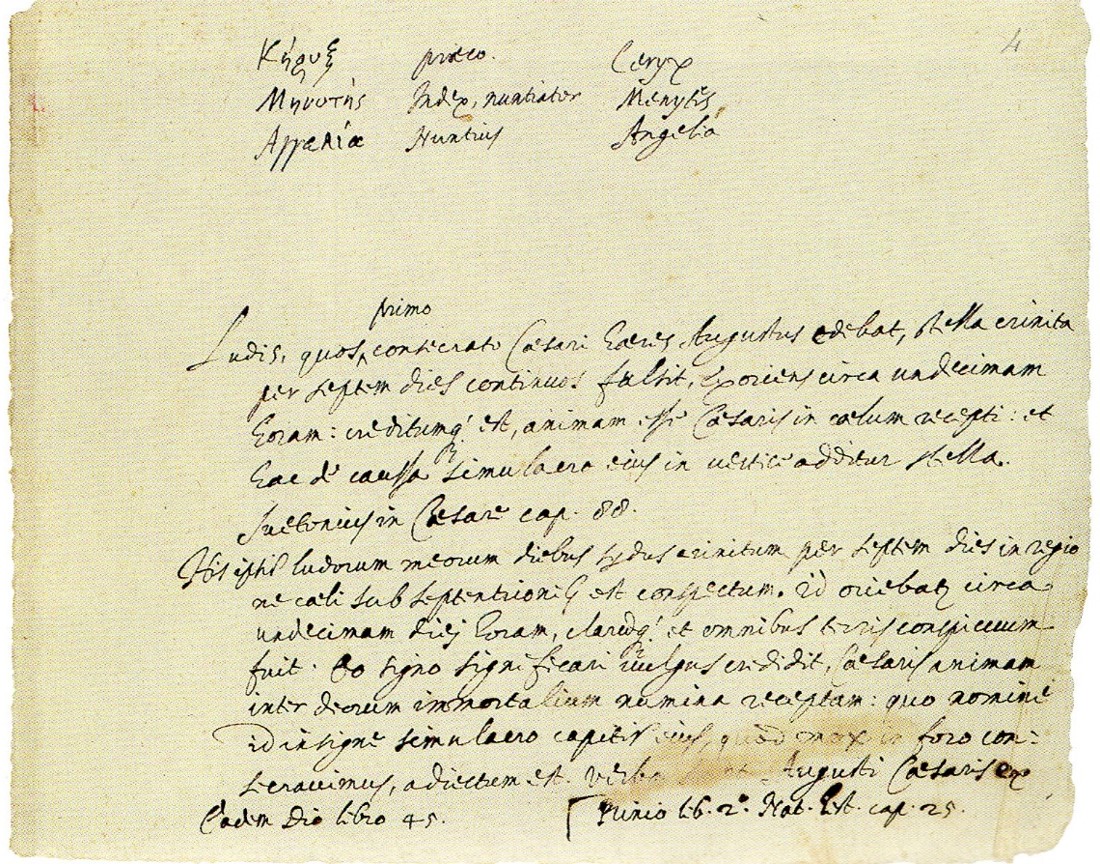 4
Κήρυξ præco. Ceryx
Μηνυτής Index, nuntiator Menytes
Αγγελία Nuntius Angelia
primo
Ludis, quos consecrato Cæsari hæres Augustus edebat, stella crinita
per septem dies continuos fulsit, exoriens circa undecimam
horam: creditumq; est, animam esse Cæsaris in cælum recepti: et
hac de caussa simulacro eius in vertice additur stella.
Suetonius in Cæsare cap. 88.
His ipsis ludorum meorum diebus sydus crinitum per septem dies in regio
ne cæli sub septentrionib est conspectum. id oriebat circa
undecimam diei horam, clarumq; et omnibus terris conspicuum
fuit. Eo signo significari vulgus credidit, Cæsaris animam
inter deorum immortalium numina receptam: quo nomine
id insigne simulacro capitis eius, quod mox in foro con=
secravimus, adiectum est. verba Augusti Cæsaris ex
Eadem Dio libro 45. Plinio lib. 2. Nat. hist. cap. 25.